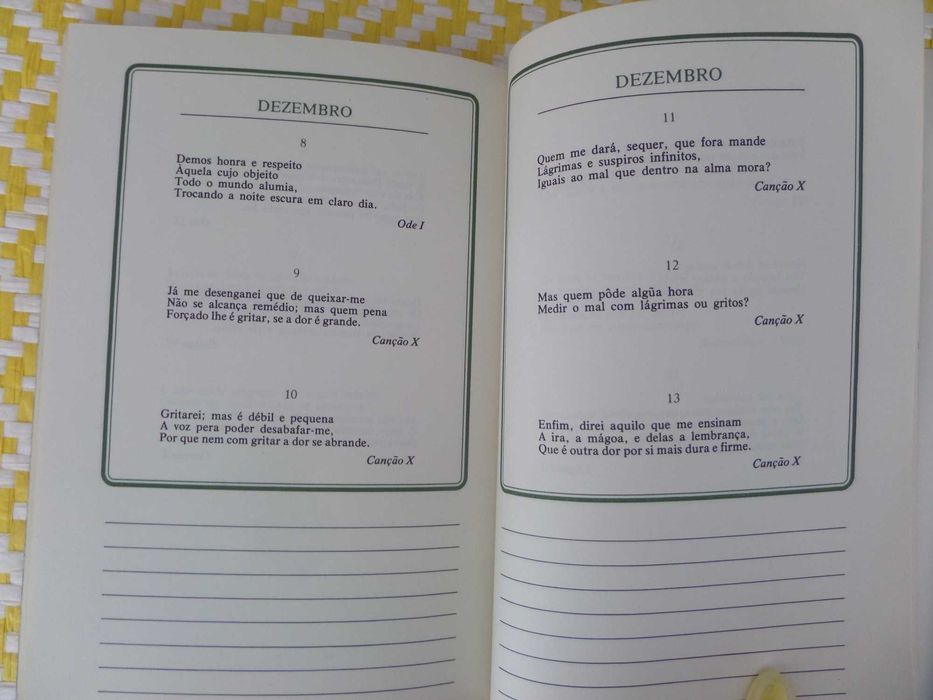 DEZEMBRO
8
Demos honra e respeito
Àquela cujo objeito
Todo o mundo alumia,
Trocando a noite escura em claro dia.
Ode I
9
Já me desenganei que de queixar-me
Não se alcança remédio; mas quem pena
Forçado lhe é gritar, se a dor é grande.
Canção X
10
Gritarei; mas é débil e pequena
A voz pera poder desabafar-me,
Por que nem com gritar a dor se abrande.
Canção X
DEZEMBRO
11
Quem me dará, sequer, que fora mande
Lágrimas e suspiros infinitos,
Iguais ao mal que dentro na alma mora?
Canção X
12
Mas quem pôde algũa hora
Medir o mal com lágrimas ou gritos?
Canção X
13
Enfim, direi aquilo que me ensinam
A ira, a mágoa, e delas a lembrança,
Que é outra dor por si mais dura e firme.
Canção X